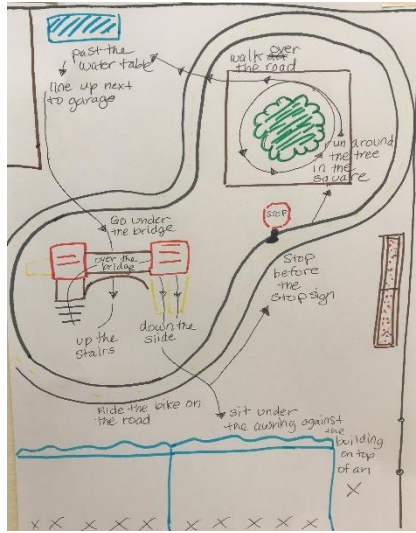 past the
water table
line up next
to garage
walk over
the road
run around
the tree
in the
square
STOP
Go under
the bridge
over the
bridge
Stop
before
the
stop sign
up the
stairs
down the
slide
Ride the bike on
the road
sit under
the awning against
the
building
on top
of an
X
X X X X X X X X X X